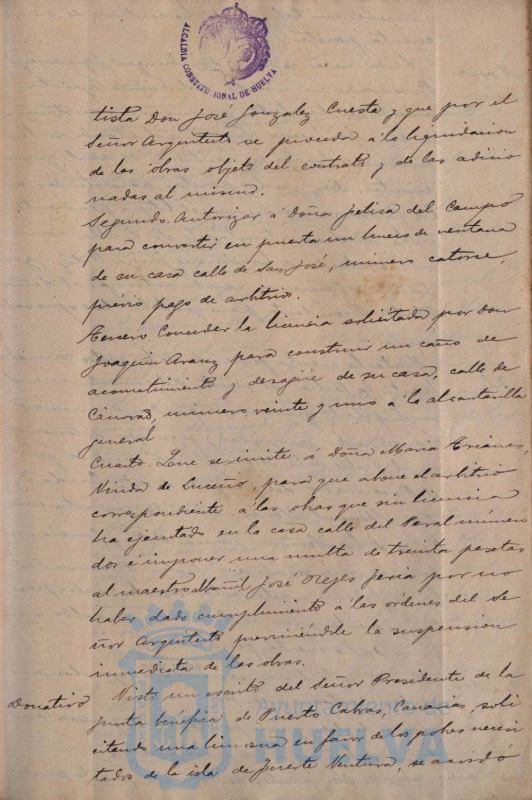 ALCALDIA CONSTITUCIONAL DE HUELVA
tista Don José Gonzalez Cuesta y que por el
Señor Arquitecto se proceda á la liquidacion
de las obras objeto del contrato y de las adicio
nadas al mismo.
Segundo. Autorizar á Doña Felisa del Campo
para convertir en puerta un hueco de ventana
de su casa calle de San José, número catorce,
prévio pago de arbitrio.
Tercero. Conceder la licencia solicitada por don
Joaquin Aranz para construir un caño de
acometimiento y desagüe de su casa, calle de
Cánovas, número veinte y uno á la alcantarilla
general
Cuarto. Que se invite á Doña Maria Arianes,
Viuda de Luceño, para que abone el arbitrio
correspondiente á las obras que sin licencia
ha ejecutado en la casa calle del Peral número
dos é imponer una multa de treinta pesetas
al maestro albañil José Reyes Feria por no
haber dado cumplimiento á las órdenes del Se
ñor Arquitecto previniéndole la suspension
inmediata de las obras.
Donativo
Visto un escrito del Señor Presidente de la
Junta benéfica de Puerto Cabras, Canarias, soli
citando una limosna en favor de los pobres necesi
tados de la isla de Fuerte Ventura, se acordó
Ayuntamiento de
HUELVA